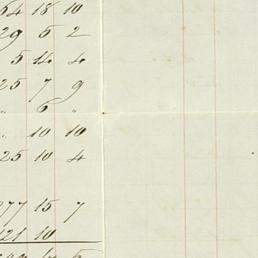 64 18 10
29 5 2
5 14 4
25 7 9
" 6 "
" 10 10
25 10 4
277 15 7
121 10